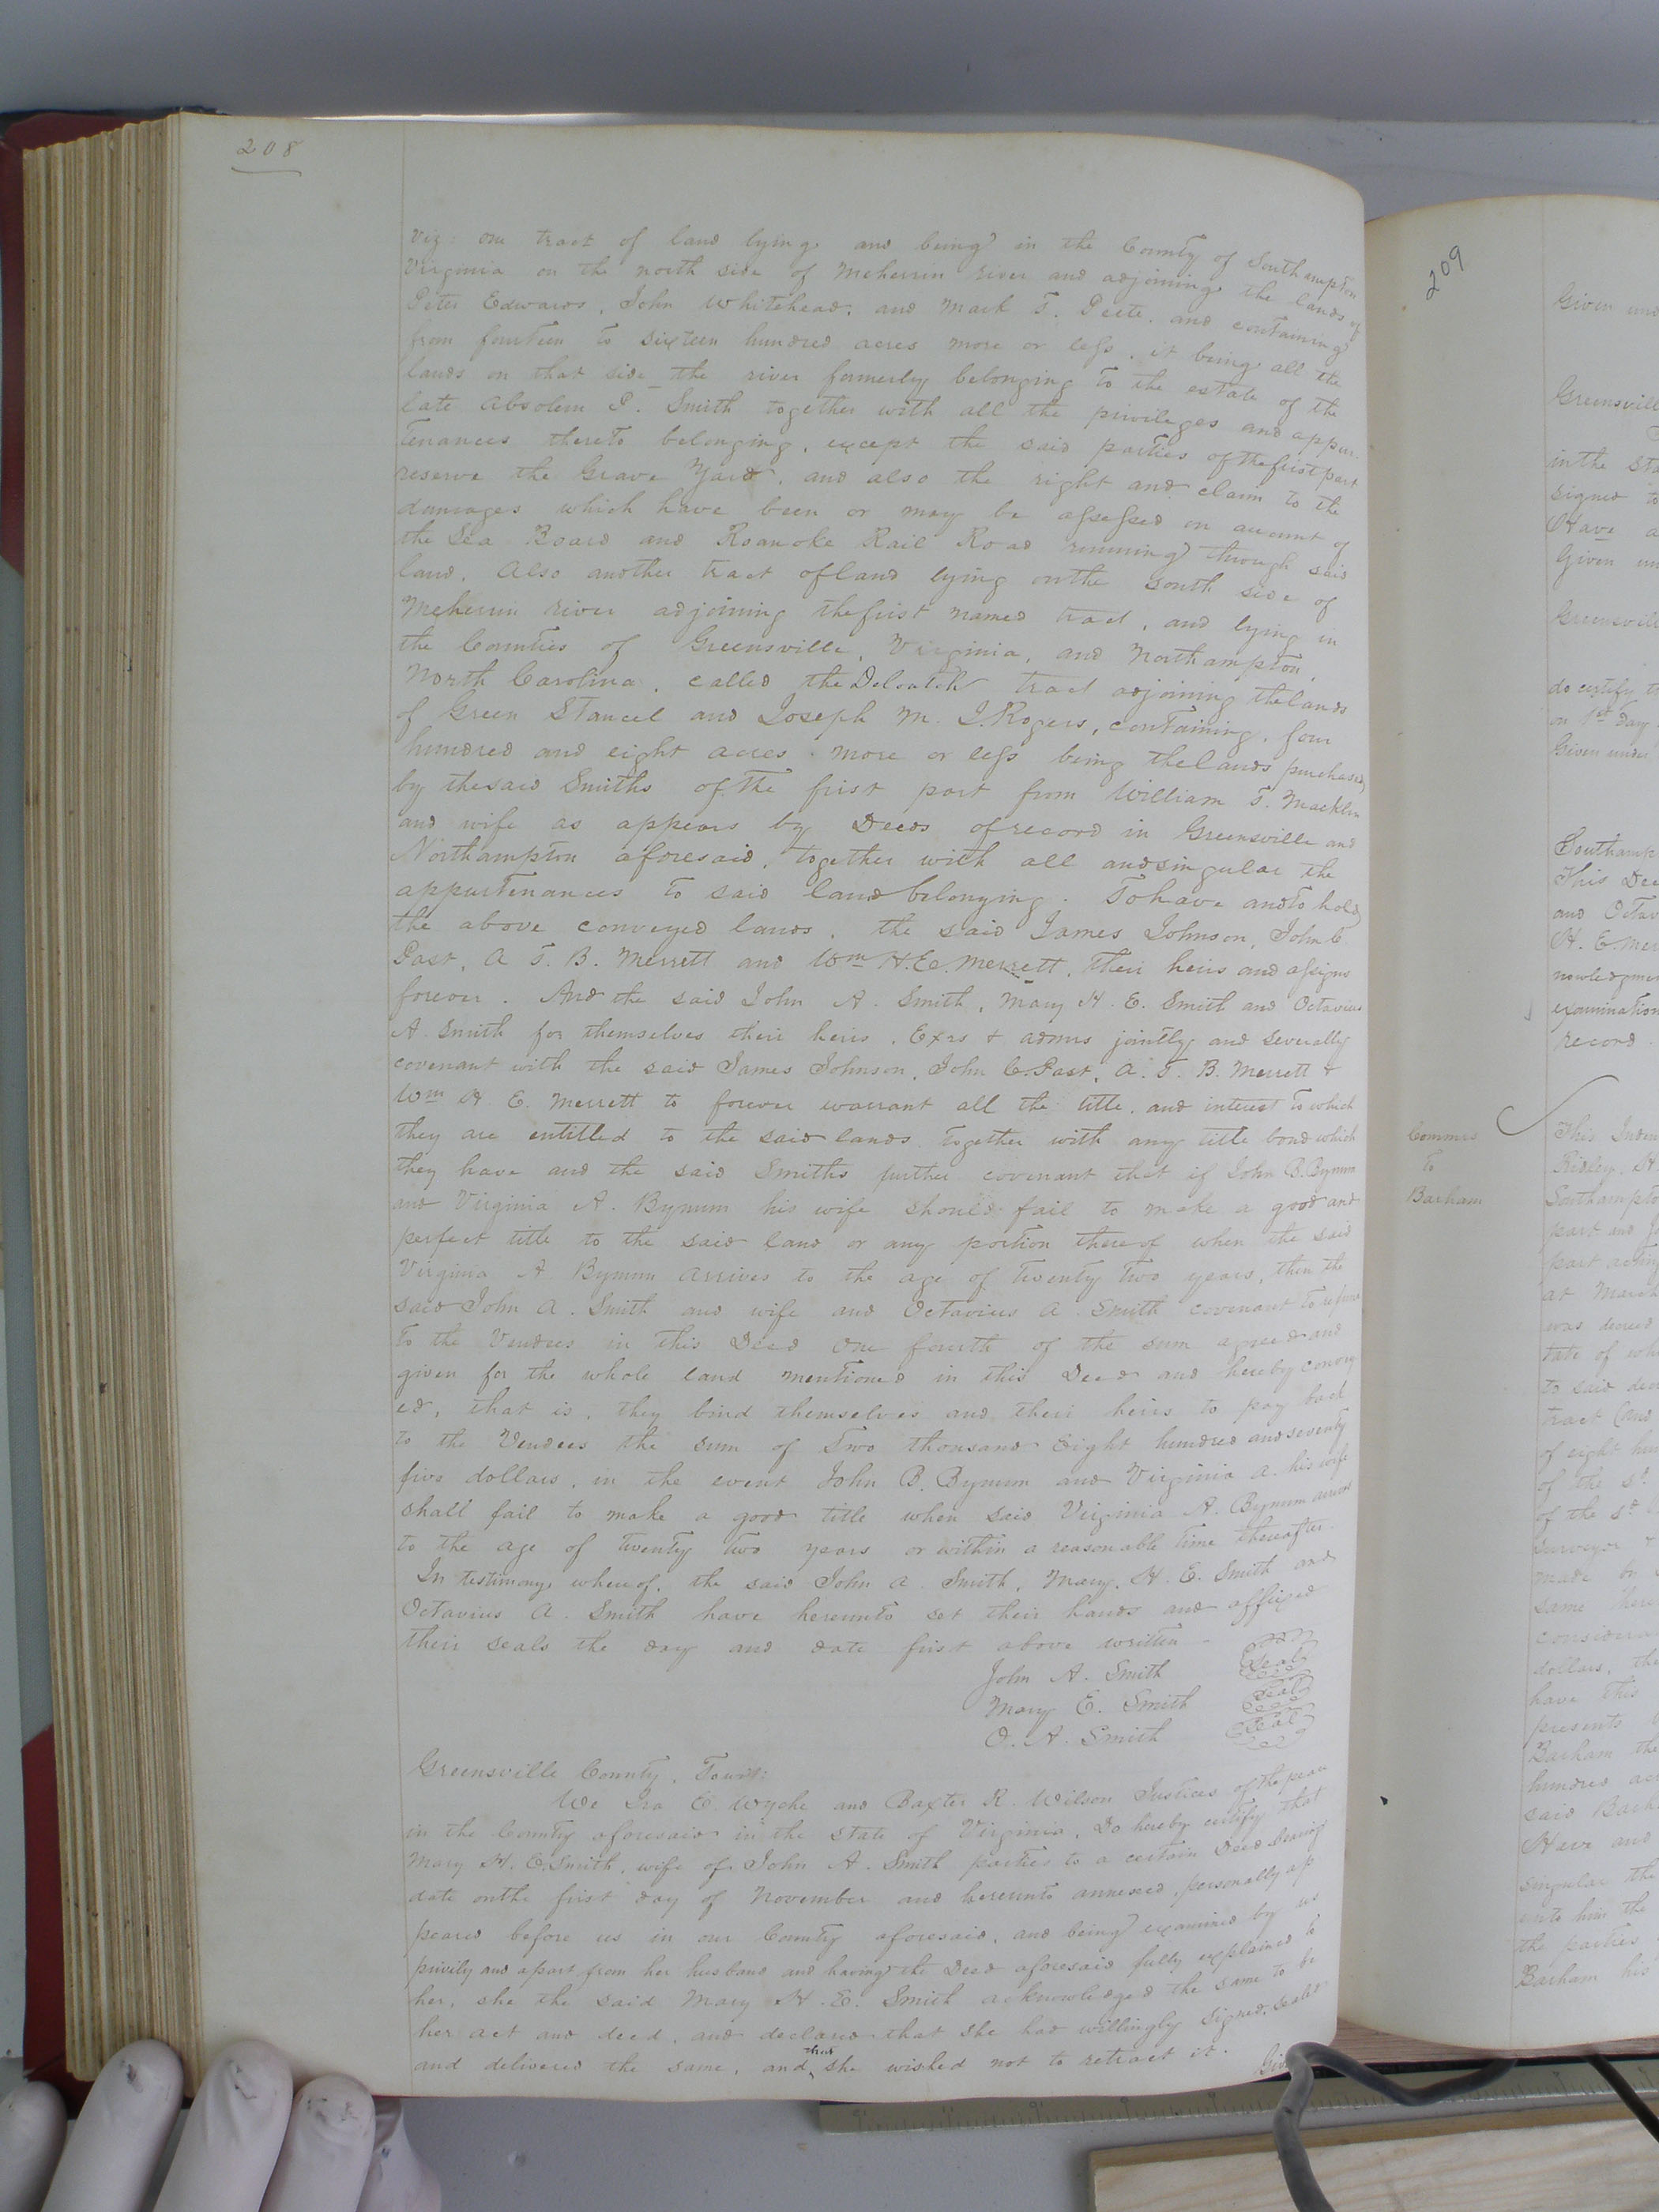 208
Viz: one tract of land lying and being in the County of Southampton
Virginia on the north side of Meherrin river and adjoining the lands of
Peter Edwards, John Whitehead, and Mark T. Peete, and containing
from fourteen to sixteen hundred acres more or less, it being all the
lands on that side the river formerly belonging to the estate of the
late Absolem P. Smith together with all the privileges and appur-
tenances thereto belonging, except the said parties of the first part
reserve the Grave Yard, and also the right and claim to the
damages which have been or may be assessed on account of
the Sea Board and Roanoke Rail Road running through said
land. Also another tract of land lying on the south side of
Meherrin river adjoining the first named tract, and lying in
the Counties of Greensville, Virginia, and Northampton,
North Carolina, called the Deloatch tract adjoining the lands
of Green Stancel and Joseph M. S. Rogers, containing four
hundred and eight acres more or less being the lands purchased
by the said Smiths of the first part from William T. Macklin
and wife as appears by Deeds of record in Greensville and
Northampton aforesaid, together with all and singular the
appurtenances to said land belonging. To have and to hold
the above conveyed lands, the said James Johnson, John C
Past, A. T. B. Merrett and Wm H. E. Merrett, their heirs and assigns
forever. And the said John A. Smith, Mary H. E. Smith and Octavius
A. Smith for themselves their heirs, Exrs & admrs jointly and severally
covenant with the said James Johnson, John C. Past, A. T. B. Merrett &
Wm H. E. Merrett to forever warrant all the title, and interest to which
they are entitled to the said lands together with any title bond which
they have and the said Smiths further covenant that if John B. Bynum
and Virginia A. Bynum his wife should fail to make a good and
perfect title to the said land or any portion thereof when the said
Virginia A Bynum arrives to the age of twenty two years, then the
said John A. Smith and wife and Octavius A. Smith covenant to refund
to the Vendees in this Deed one fourth of the sum agreed and
given for the whole land mentioned in this Deed and hereby convey
ed, that is, they bind themselves and their heirs to pay back
to the Vendees the sum of Two thousand Eight hundred and seventy
five dollars, in the event John B. Bynum and Virginia A. his wife
shall fail to make a good title when said Virginia A. Bynum arrives
to the age of twenty two years or within a reasonable time thereafter.
In testimony whereof, the said John A. Smith, Mary H. E. Smith and
Octavius A. Smith have hereunto set their hands and affixed
their seals the day and date first above written -
John A. Smith Seal
Mary E. Smith Seal
O. A. Smith Seal
Greensville County, Towit:
We Ira E. Wyche and Baxter R. Wilson Justices of the peace
in the County aforesaid in the state of Virginia, Do hereby certify that
Mary H. E. Smith, wife of John A. Smith parties to a certain Deed bearing
date on the first day of November and hereunto annexed, personally ap
peared before us in our County aforesaid, and being examined by us
privily and apart from her husband and having the Deed aforesaid fully explained to
her, she the said Mary H. E. Smith acknowledged the same to be
her act and deed, and declared that she had willingly signed, sealed
and delivered the same, and that she wished not to retract it. Giv
209
Given und
Greensvill
in the Sta
signed to
Have a
Given un
Greensvill
do certify th
on 1st day
Given under
Southamp
This Dee
and Octav
H. E. Mer
nowledgmen
examination
record.
Commrs
to
Barham
This Inden
Ridley, H
Southampto
part and Jo
part acting
at March
was decreed
tate of wh
to said dec
tract (and
of eight hun
of the sd
of the sd
surveyor
made by
same here
considera
dollars, the
have this
presents
Barham the
hundred acr
said Barh
Have and
singular the
unto him the
the parties
Barham his